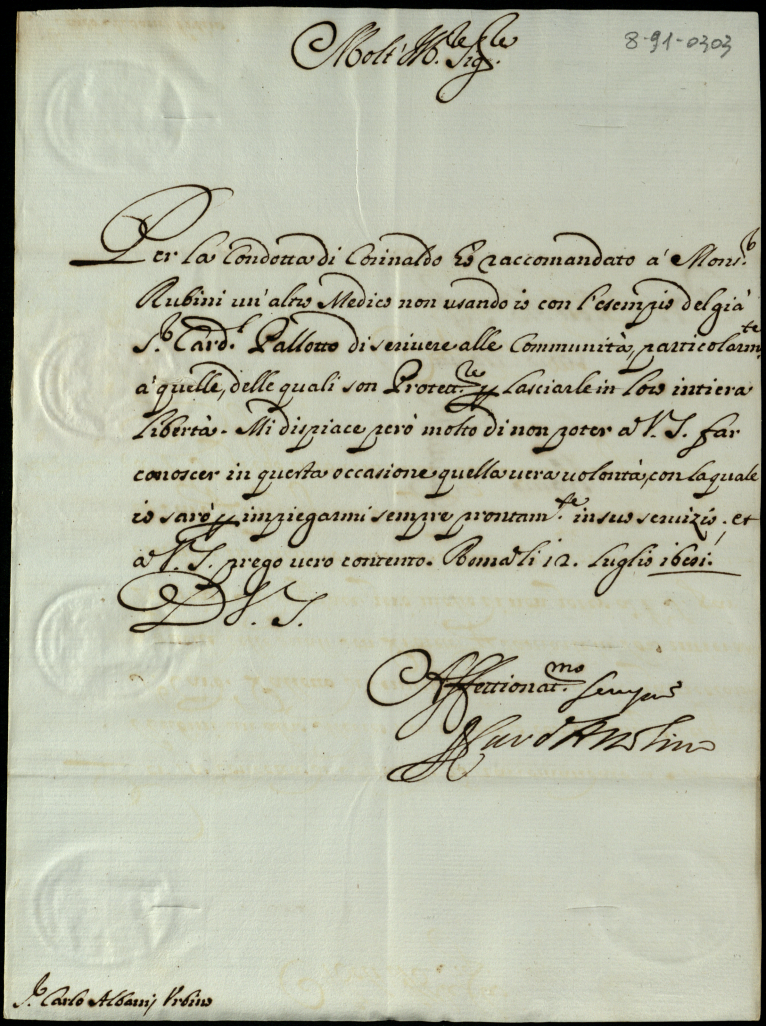 8-91-0303
Molt' Ill.re Sig.re
Per la Condotta di Corinaldo hò raccomandato à Mons.r
Rubini un'altro Medico non usando io con l'esempio del già
S.r Card.l Pallotto di scrivere alle Communità, particolarm.te
à quelle, delle quali son Protett.re p lasciarle in loro intiera
libertà. Mi dispiace però molto di non poter a V. S. far
conoscer in questa occasione quella vera volontà, con la quale
io sarò p impiegarmi sempre prontam.te in suo servizio; et
a V. S. prego vero contento. Roma li 12. Luglio
D V. S.
Affettionat.mo sempre
Il Card
S.r Carlo Albanij Urbino